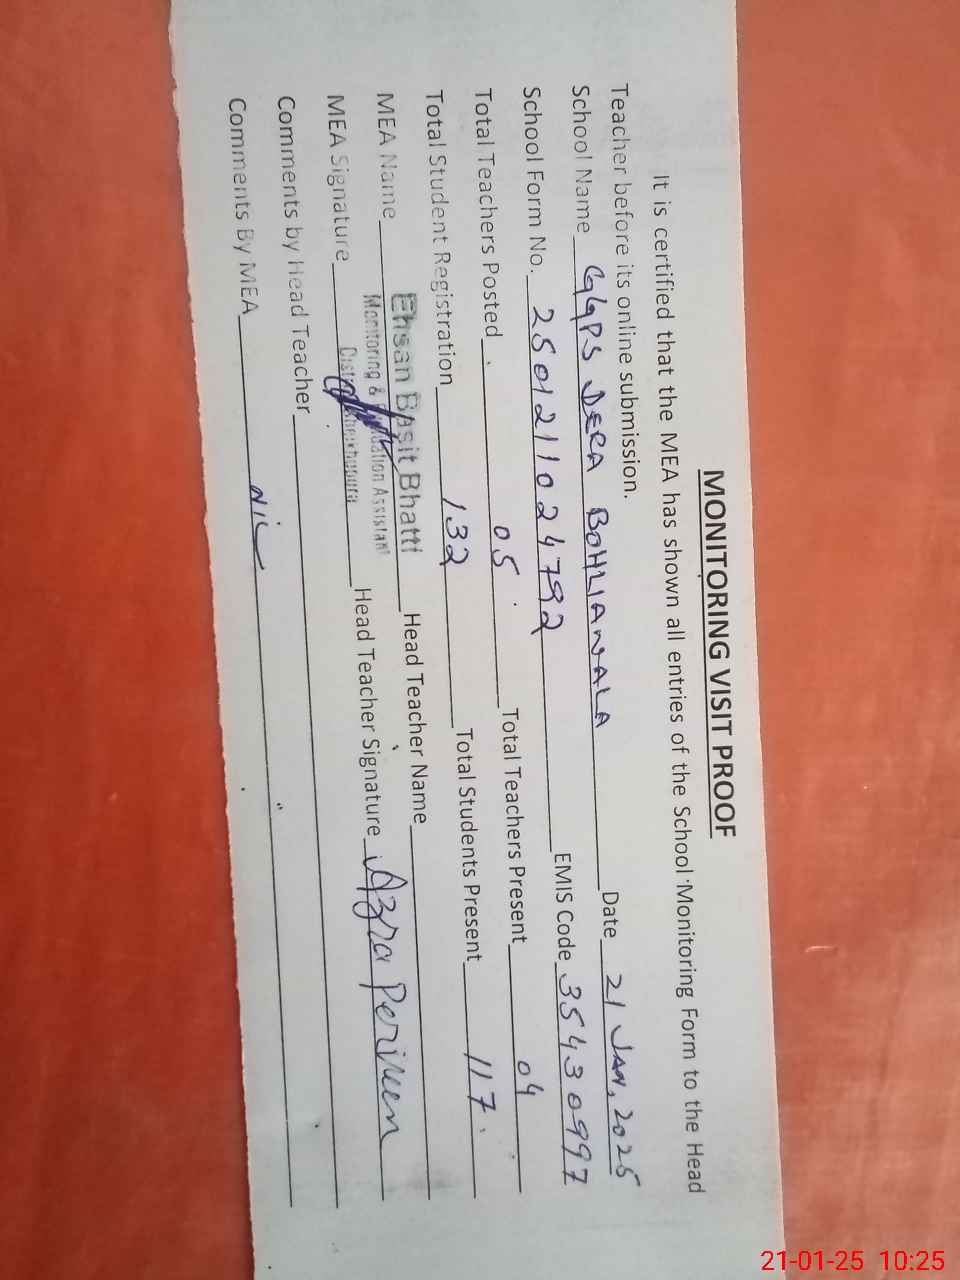 MONITORING VISIT PROOF
It is certified that the MEA has shown all entries of the School Monitoring Form to the Head
Teacher before its online submission.
School Name GGPS DERA BOHLIANWALA Date 21 JAN, 2025
School Form No. 2501211024792 EMIS Code 35430997
Total Teachers Posted 05 Total Teachers Present 04
Total Student Registration 132 Total Students Present 117
MEA Name Ehsan Basit Bhatti Head Teacher Name
Monitoring & Evaluation Assistant
MEA Signature District Sheikhupura Head Teacher Signature Azra Perveen
Comments by Head Teacher
Comments By MEA NIL
21-01-25 10:25